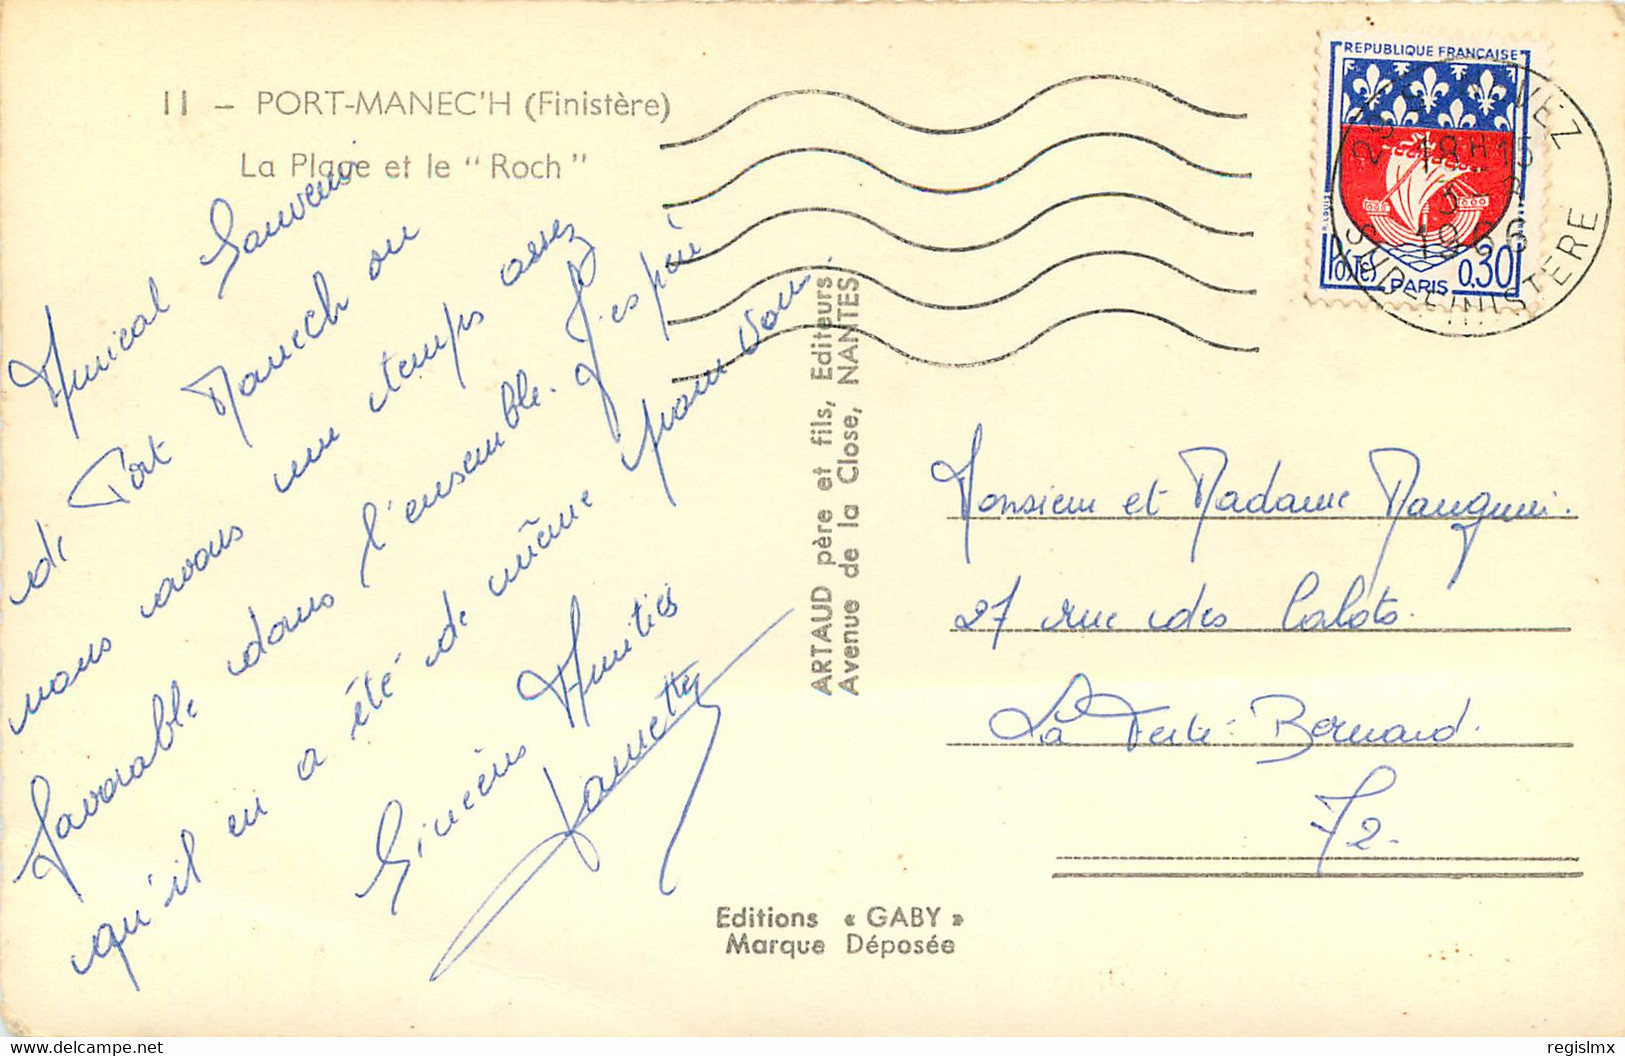 11 - PORT-MANEC'H (Finistère)
La Plage et le "Roch"
Amical Souvenir
de Port Manech ou
nous avons un temps assez
favorable dans l'ensemble. J'espère
qu'il en a été de même pour vous.
Sincères Amitiés
ARTAUD père et fils, Editeurs
Avenue de la Close, NANTES
Editions « GABY »
Marque Déposée
REPUBLIQUE FRANÇAISE
POSTES
PARIS
0,30
18 H 15
1966
FINISTERE
Monsieur et Madame
27 rue des Calots.
La Ferté-Bernard.
72.
regislmx